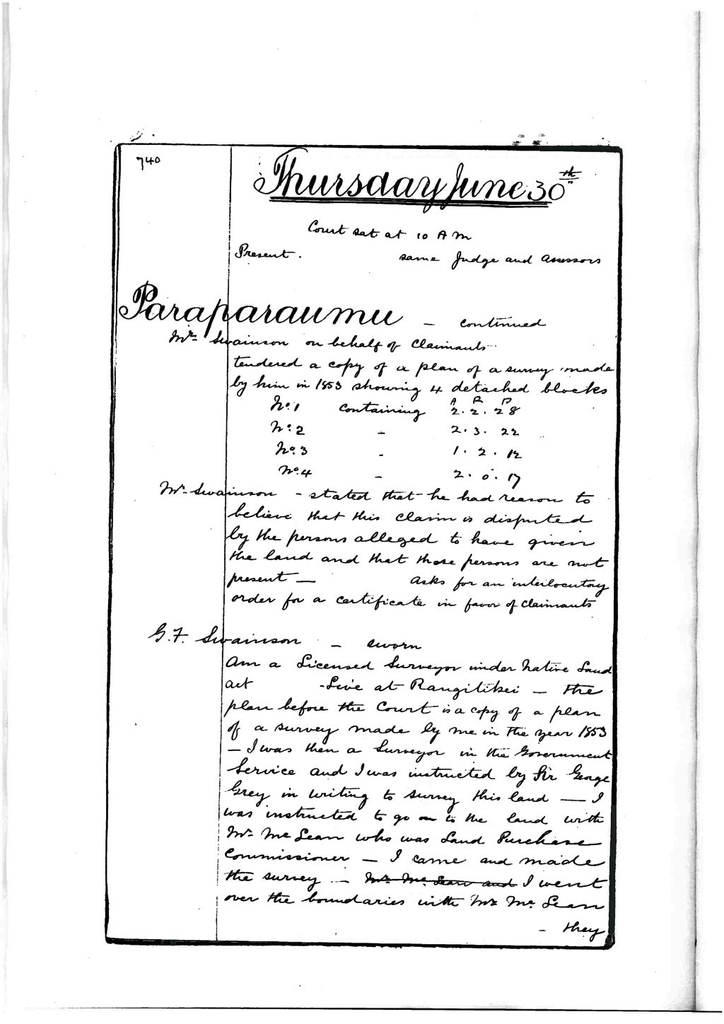 740
Thursday June 30th
Court sat at 10 A M
Present. same Judge and Assessors
Paraparaumu - continued
Mr. Swainson on behalf of Claimants
tendered a copy of a plan of a survey made
by him in 1853 showing 4 detached blocks
A R P
No. 1 containing 2. 2. 28
No. 2 - 2. 3. 22
No. 3 - 1. 2. 12
No. 4 - 2. 0. 17
Mr. Swainson - stated that he had reason to
believe that this claim is disputed
by the persons alleged to have given
the land and that those persons are not
present - Asks for an interlocutory
order for a certificate in favor of Claimants
G. F. Swainson - sworn
Am a Licensed Surveyor under Native Land
act - Live at Rangitikei - the
plan before the Court is a copy of a plan
of a survey made by me in the year 1853
- I was then a Surveyor in the Government
Service and I was instructed by Sir George
Grey in writing to survey this land - I
was instructed to go on to the land with
Mr. McLean who was Land Purchase
Commissioner - I came and made
the survey - Mr. McLean and I went
over the boundaries with Mr. McLean
- they